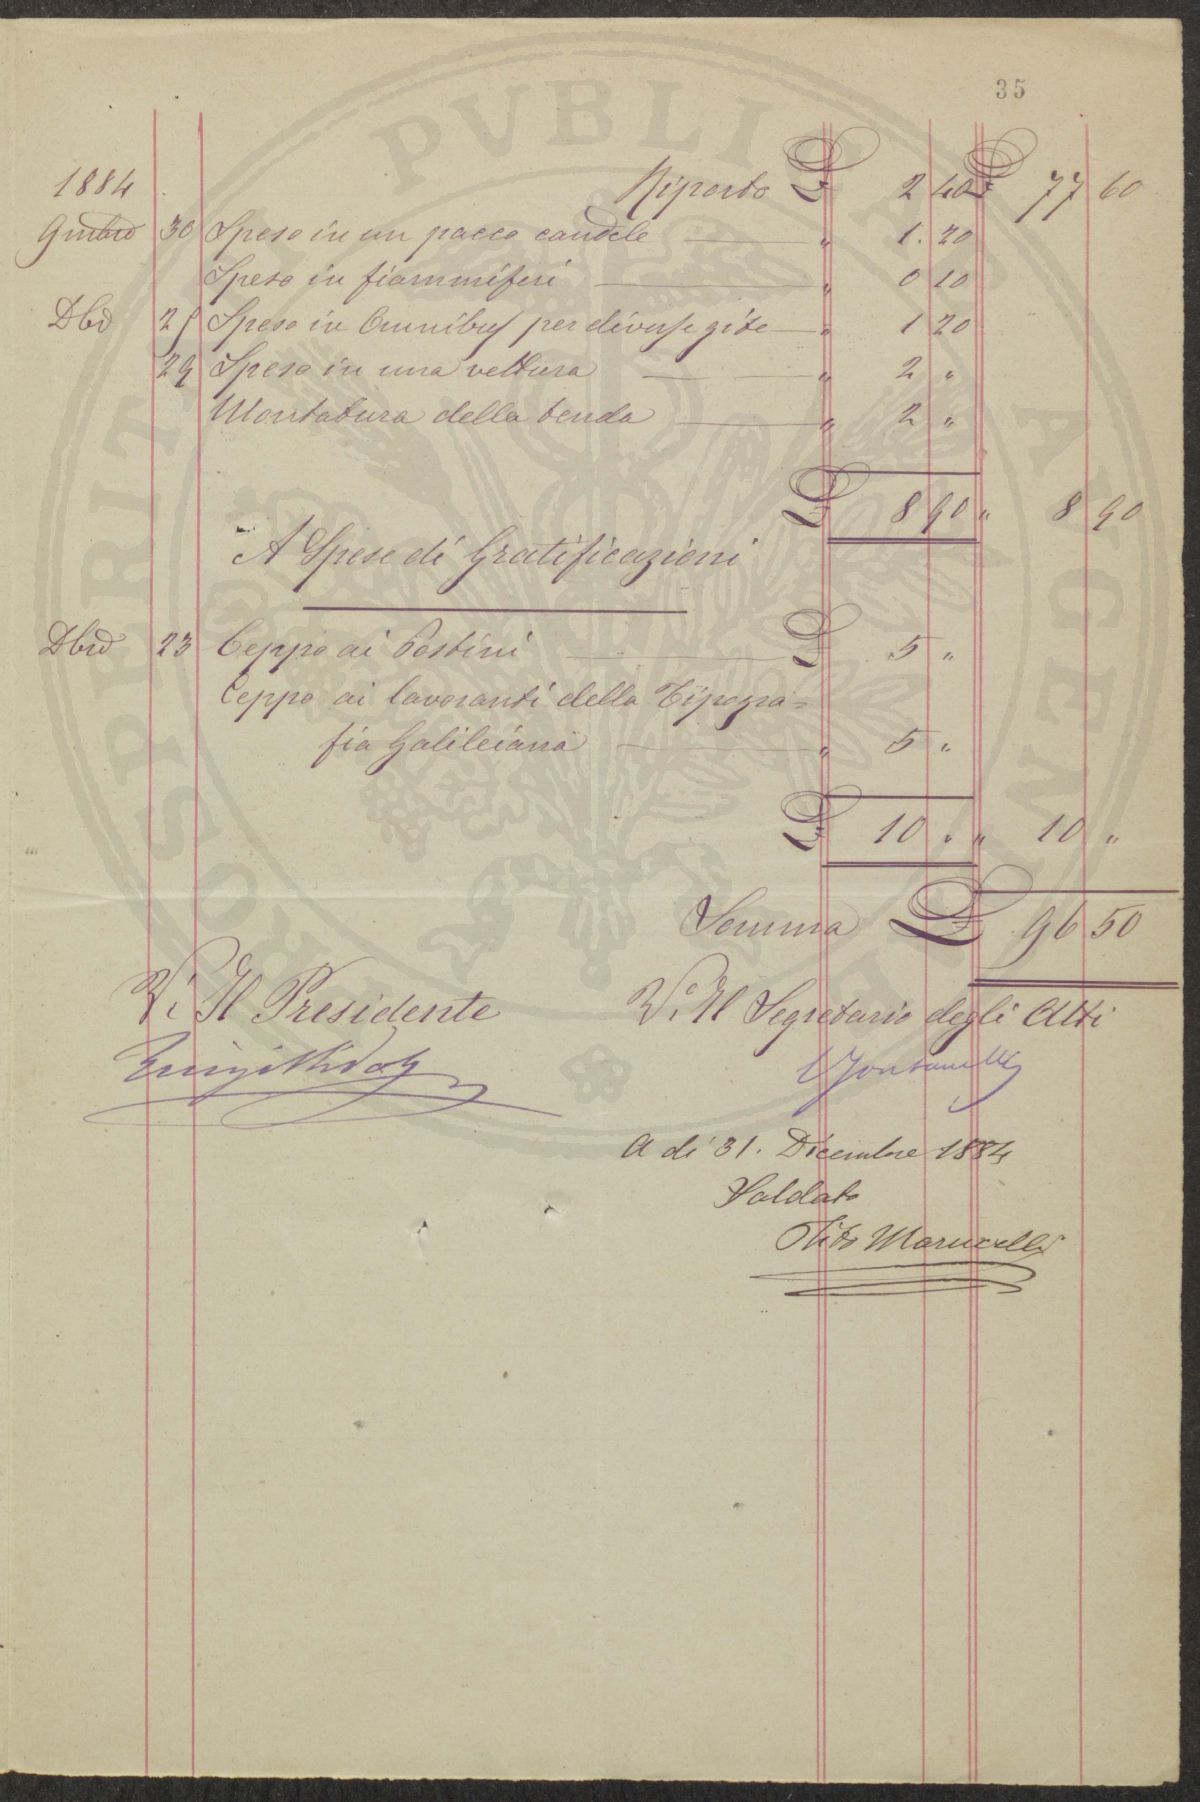 35
1884 Riporto £ 2 40 £ 77 60
30 Spese in un pacco candele " 1. 20
Spese in fiammiferi " 0 10
Dbre Spese in Omnibus per diverse gite " 1 20
29 Spese in una vettura " 2 "
Montatura della tenda " 2 "
£ 8 90 " 8 90
A Spese di Gratificazioni
Dbre 23 Ceppo ai Postini £ 5 "
Ceppo ai lavoranti della Tipogra=
fia Galileiana " 5 "
£ 10 " " 10 "
Somma £ 96 50
V. Il Presidente V.o Il Segretario degli Atti
CFontanelli
A di 31. Dicembre 1884
Saldato
Tito Marucelli
PVBLI